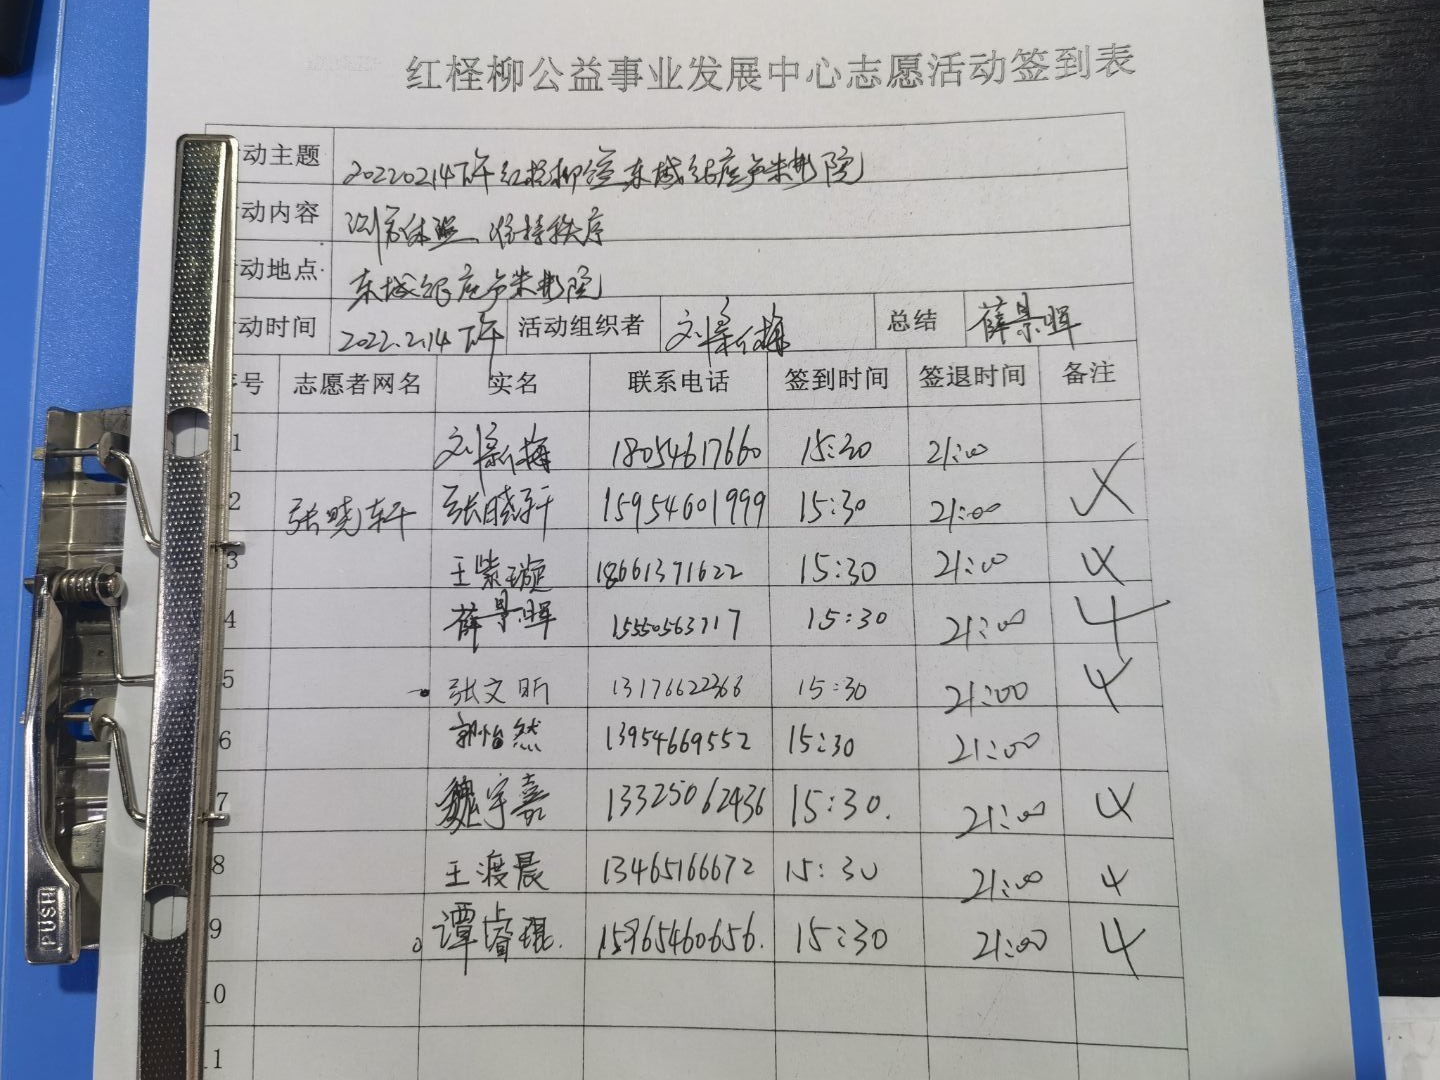 红柽柳公益事业发展中心志愿活动签到表
动主题 20220214下午红柽柳在东城银座卢米埃影院
动内容 测量体温、维持秩序
动地点 东城银座卢米埃影院
动时间 2022.2.14下午 活动组织者 总结 薛景晖
序号 志愿者网名 实名 联系电话 签到时间 签退时间 备注
1 18054617660 15:30 21:00
2 张晓轩 张晓轩 15954601999 15:30 21:00
3 王紫璇 18661371622 15:30 21:00
4 薛景晖 15550563717 15:30 21:00 4
5 张文昕 13176622366 15:30 21:00 4
6 郭怡然 13954669552 15:30 21:00
7 魏宇嘉 13325062436 15:30. 21:00 4
8 王渡晨 13465166672 15:30 21:00 4
9 谭睿琨. 15965460656. 15:30 21:00 4
10
11
PUSH